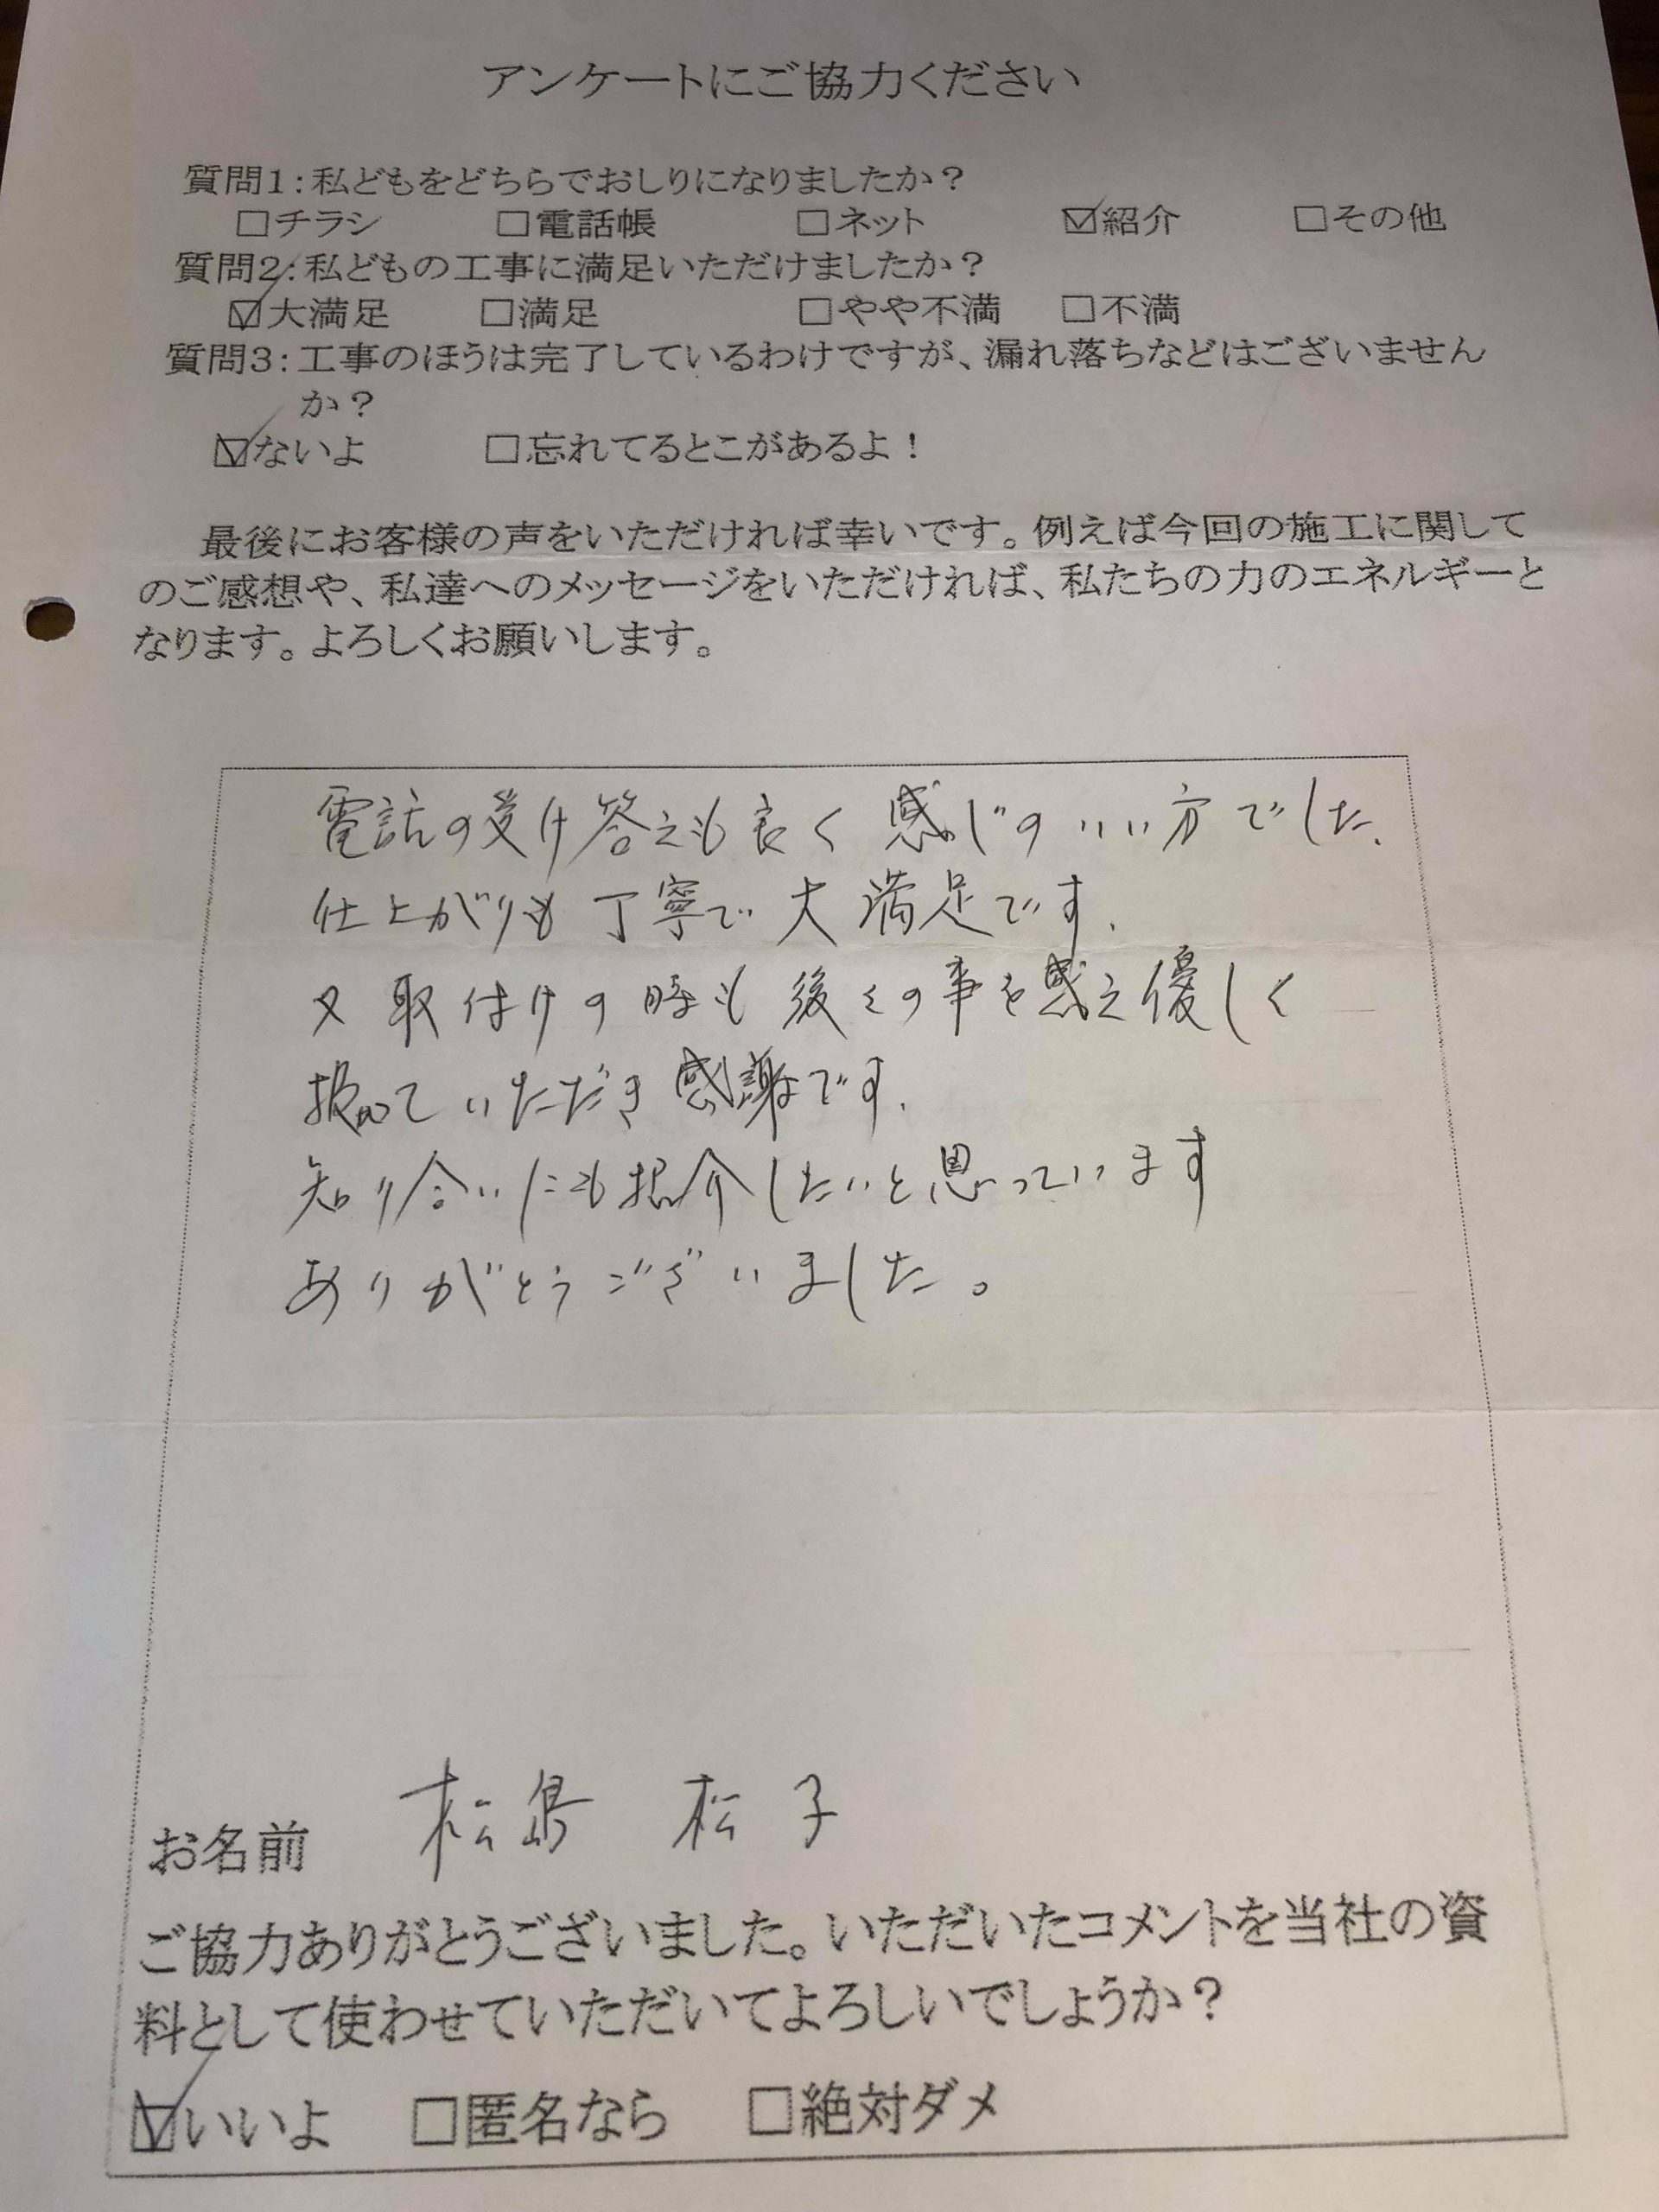 アンケートにご協力ください
質問1:私どもをどちらでおしりになりましたか?
□チラシ □電話帳 □ネット ☑紹介 □その他
質問2:私どもの工事に満足いただけましたか?
☑大満足 □満足 □やや不満 □不満
質問3:工事のほうは完了しているわけですが、漏れ落ちなどはございません
か?
☑ないよ □忘れてるとこがあるよ!
最後にお客様の声をいただければ幸いです。例えば今回の施工に関して
のご感想や、私達へのメッセージをいただければ、私たちの力のエネルギーと
なります。よろしくお願いします。
電話の受け答えも良く感じのいい方でした、
仕上がりも丁寧で大満足です、
又取付けの時も後々の事を え優しく
扱っていただき感謝です、
知り合いにも紹介したいと思っています
ありがとうございました。
お名前 松島 松子
ご協力ありがとうございました。いただいたコメントを当社の資
料として使わせていただいてよろしいでしょうか?
☑いいよ □匿名なら □絶対ダメ